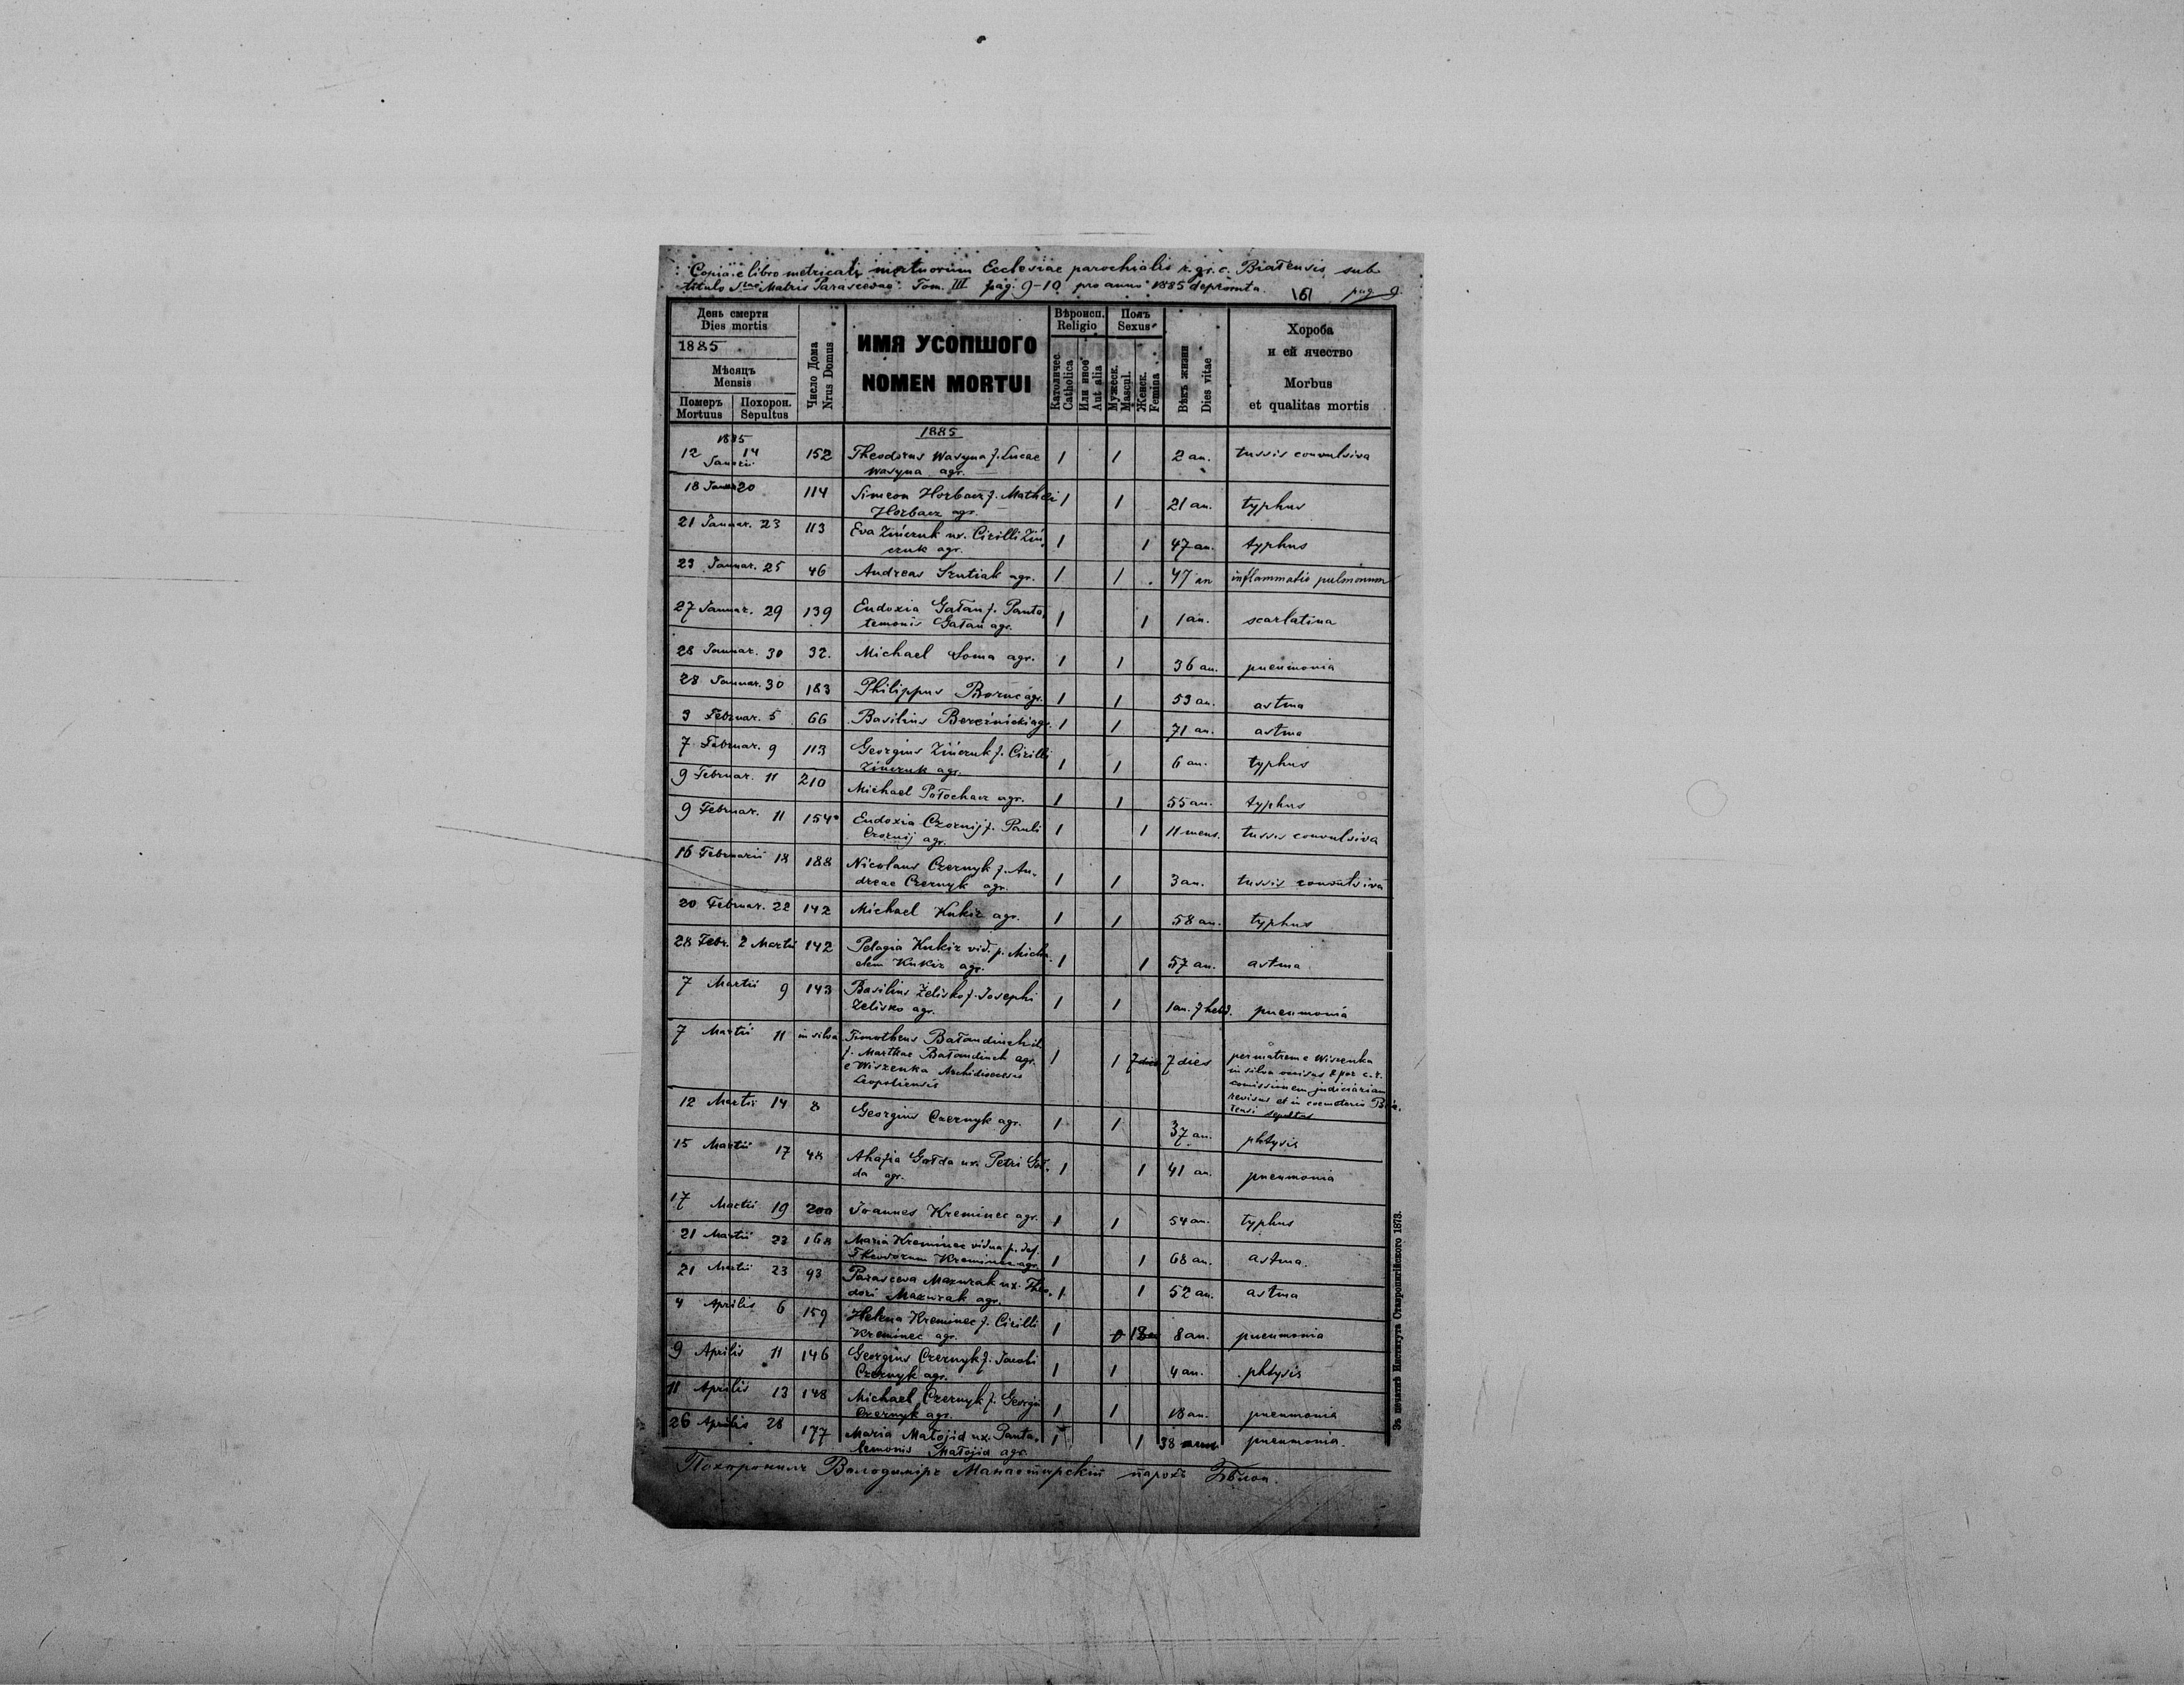 Copia e libro metricali mortuorum Ecclesiae parochialis r. gr. c. Białensis sub
titulo Stae Matris Parascevae. Tom. III pag. 9-10 pro anno 1885 depromta. 6 pag 9.
День смерти
Dies mortis
1885
Мѣсяць
Mensis
Померъ Похорон.
Mortuus Sepultus
Число Дома
Nrus Domus
ИМЯ УСОПШОГО
NOMEN MORTUI
Вѣроисп.
Religio
Католичес.
Catholica
Или иное
Aut alia
Полъ
Sexus
Мужеск.
Mascul.
Женск.
Femina
Вѣкъ жизни
Dies vitae
Хороба
и ей ячество
Morbus
et qualitas mortis
1885 1885
12 Januarii 14 152 Theodorus Wasyna f. Lucae 1 1 2 an. tussis convulsiva
Wasyna agr.
18 Januar 20 114 Simeon Horbacz f. Mathei 1 1 21 an. typhus
Horbacz agr.
21 Januar. 23 113 Eva Zińczuk ux. Cirilli Ziń- 1 1 47 an. typhus
czuk agr.
23 Januar. 25 46 Andreas Szutiak agr. 1 1 47 an inflammatio pulmonum
27 Januar. 29 139 Eudoxia Gałan f. Panta- 1 1 1 an. scarlatina
temonis Gałan agr.
28 Januar. 30 32. Michael Soma agr. 1 1 36 an. pneumonia
28 Januar. 30 183 Philippus Boruc agr. 1 1 53 an. astma
3 Februar. 5 66 Basilius Bereźnicki agr. 1 1 71 an. astma
7 Februar. 9 113 Georgius Zińczuk f. Cirilli 1 1 6 an. typhus
Zińczuk agr.
9 Februar. 11 210 Michael Połochacz agr. 1 1 55 an. typhus
9 Februar. 11 154 Eudoxia Czornij f. Pauli 1 1 11 mens. tussis convulsiva
Czornij agr.
16 Februarii 18 188 Nicolaus Czernyk f. An- 1 1 3 an. tussis convulsiva
dreae Czernyk agr.
20 Februar. 22 142 Michael Kukiz agr. 1 1 58 an. typhus
28 Febr. 2 Martii 142 Pelagia Kukiz vid. p. Micha- 1 1 57 an. astma
elem Kukiz agr.
7 Martii 9 143 Basilius Zelisko f. Josephi 1 1 1 an. 7 hebd. pneumonia
Zelisko agr.
7 Martii 11 in silva Timotheus Bałandiuch il. 1 1 7 dies 7 dies per matrem e Wiszenka
f. Marthae Bałandiuch agr. in silva occisus & per c. r.
e Wiszenka Archidioecesis comissionem judiciariam
Leopoliensis revisus et in coemeterio Bia-
łensi sepultus
12 Martii 14 8 Georgius Czernyk agr. 1 1 37 an. phtysis
15 Martii 17 48 Ahafia Gołda ux. Petri Goł- 1 1 41 an. pneumonia
da agr.
17 Martii 19 200 Joannes Kreminec agr. 1 1 54 an. typhus
21 Martii 23 168 Maria Kreminec vidua p. def. 1 1 68 an. astma.
Theodorum Kreminec agr.
21 Martii 23 93 Parasceva Mazurak ux. Theo- 1 1 52 an. astma
dori Mazurak agr.
4 Aprilis 6 159 Helena Kreminec f. Cirilli 1 1 8 an. pneumonia
Kreminec agr.
9 Aprilis 11 146 Georgius Czernyk f. Jacobi 1 1 4 an. phtysis
Czernyk agr.
11 Aprilis 13 148 Michael Czernyk f. Georgii 1 1 18 an. pneumonia
Czernyk agr.
26 Aprilis 28 177 Maria Małojid ux. Panta- 1 1 38 pneumonia.
lemonis Małojid agr.
Похоронилъ Володимиръ Манастирскій парохъ
Зъ печатнѣ Института Ставропигійского 1873.